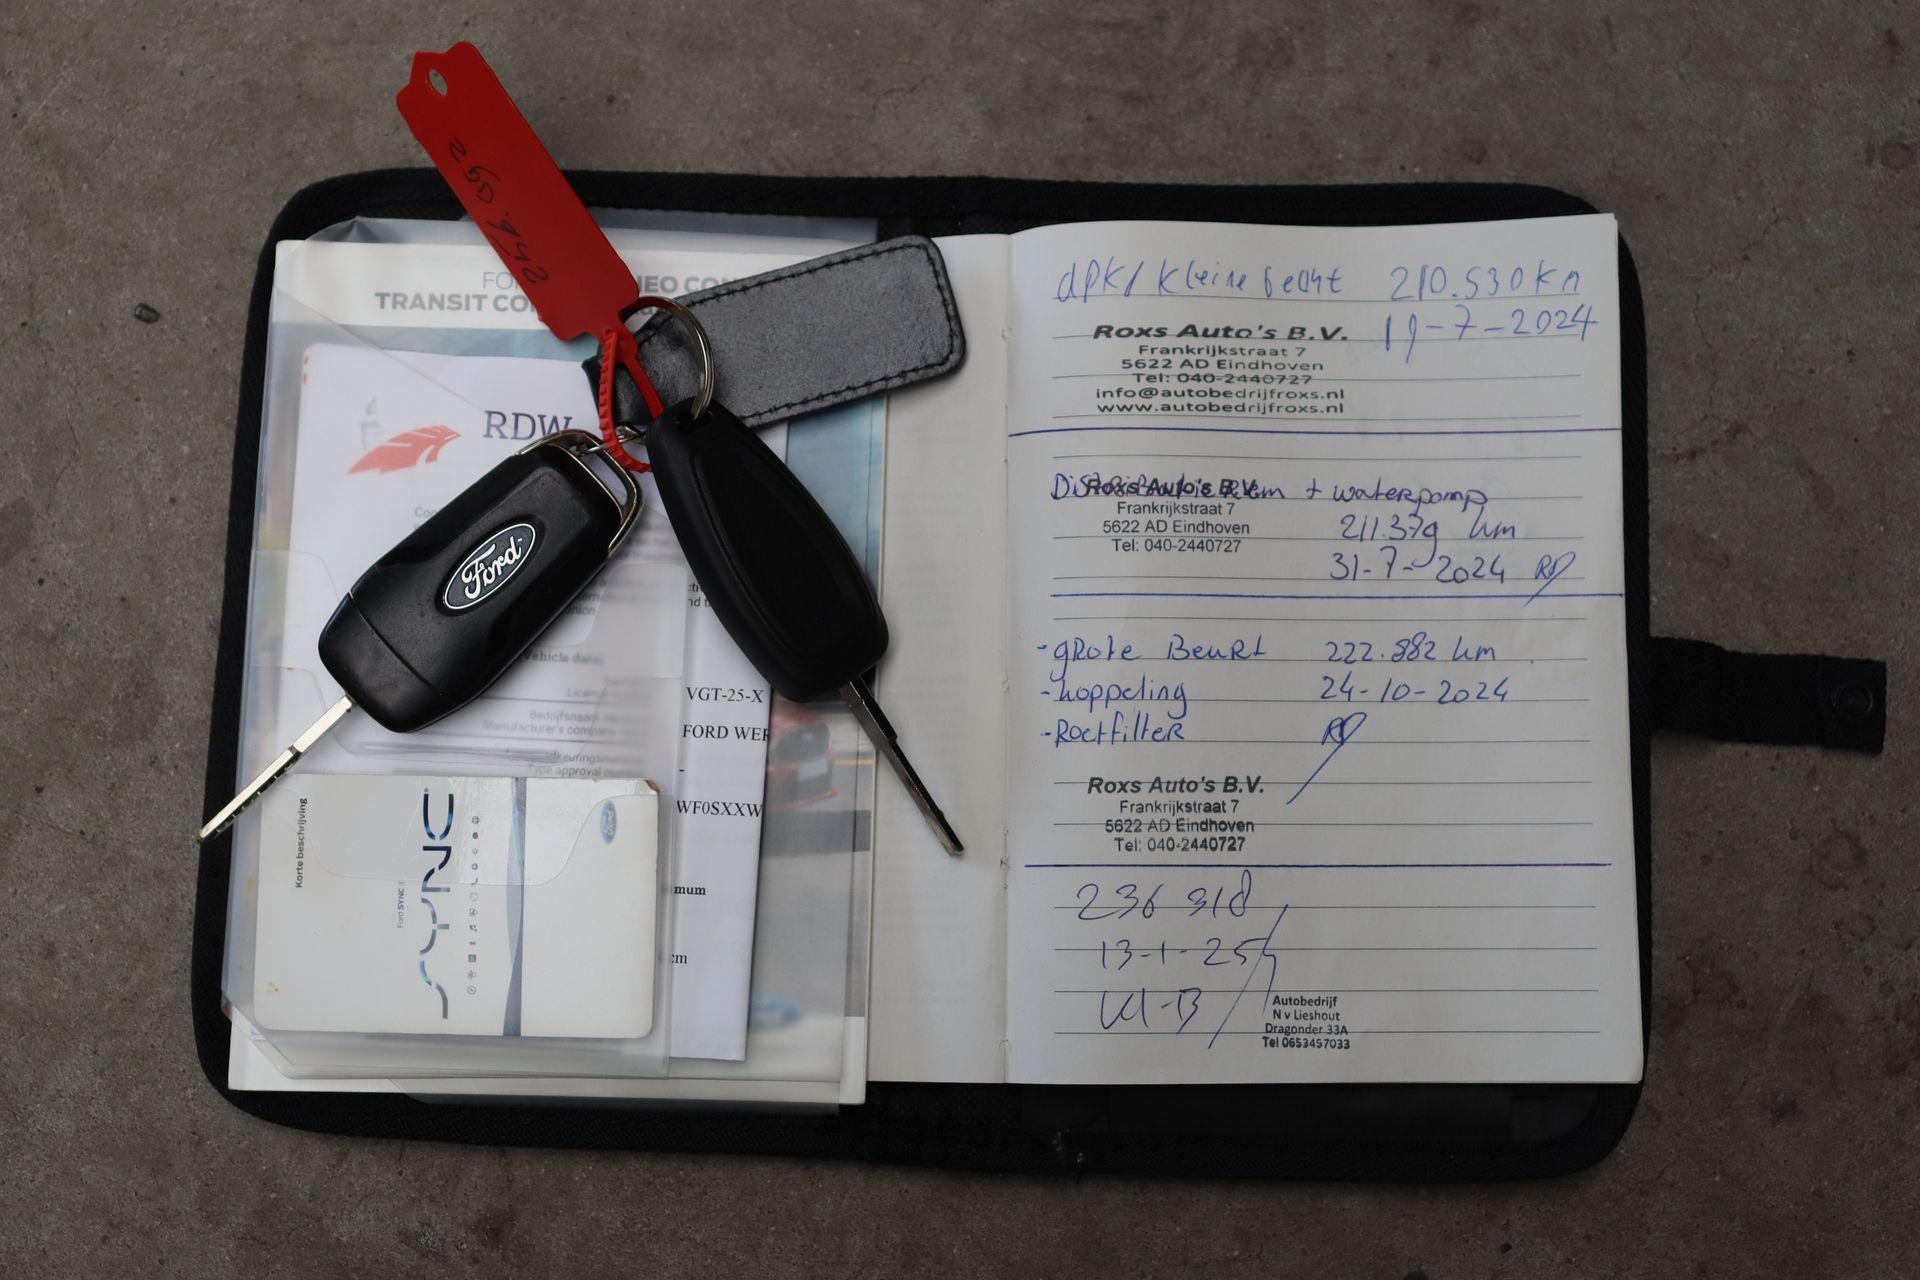 TRANSIT CO
RDW
Ford
(Vehicle data)
Bedrijfsnaam
Manufacturer's company
Type approval
VGT-25-X
FORD WER
-
WF0SXXW
mum
cm
Korte beschrijving
Ford SYNC 3
SYNC
Ford
APK/ Kleine beurt 210.530 km
19-7-2024
Roxs Auto's B.V.
Frankrijkstraat 7
5622 AD Eindhoven
Tel: 040-2440727
info@autobedrijfroxs.nl
www.autobedrijfroxs.nl
Distributie Riem + waterpomp
Roxs Auto's B.V.
Frankrijkstraat 7
5622 AD Eindhoven
Tel: 040-2440727
211.379 km
31-7-2024
-gRote BeuRt 222.882 km
-koppeling 24-10-2024
-Roetfilter
Roxs Auto's B.V.
Frankrijkstraat 7
5622 AD Eindhoven
Tel: 040-2440727
236 318
13-1-25
Kl-B
Autobedrijf
N v Lieshout
Dragonder 33A
Tel 0653457033